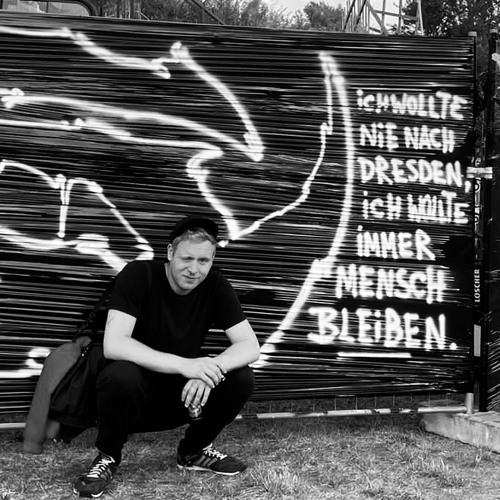 iCH WOLLTE
NiE NACH
DRESDEN,
iCH WOLLTE
iMMER
MENSCH
BLEiBEN.
LÖSCHER